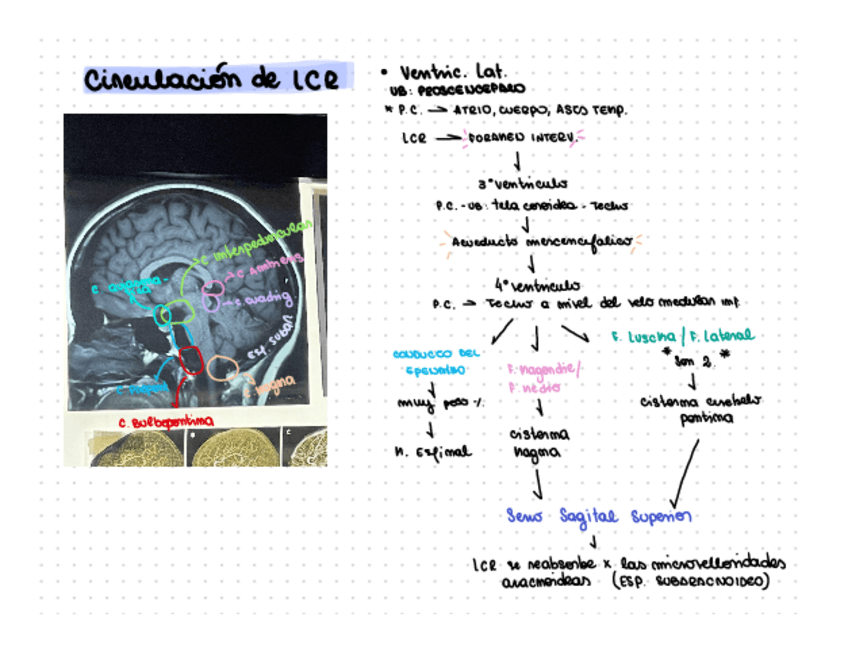 Circulación de LCR
• Ventric. Lat.
UB: PROSCENCEFARO
* P.C. → ATRIO, CUERPO, ASTS TEMP.
LCR → FORAMEN INTERV.
3° ventriculo
P.C. - UB: tela coroidea - Techo
Acueducto mercencefalico
4° ventriculo
P.C. → Techo a nivel del velo medular inf.
CONDUCTO DEL
EPENDIMO
muy poco %
M. Espinal
F. magendie/
F. medio
cisterna
magna
F. Luscka / F. lateral
* son 2. *
cisterna cerebelo
pontina
Seno Sagital Superior
LCR se reabsorbe x las microvellosidades
aracnoideas (ESP. SUBARACNOIDEO)
C. Interpeduncular
C. Ambiens
C. Cuadrig.
C. Quiasma-
Esp. subar/
C. Magna
C. Bulbopontina
B
C